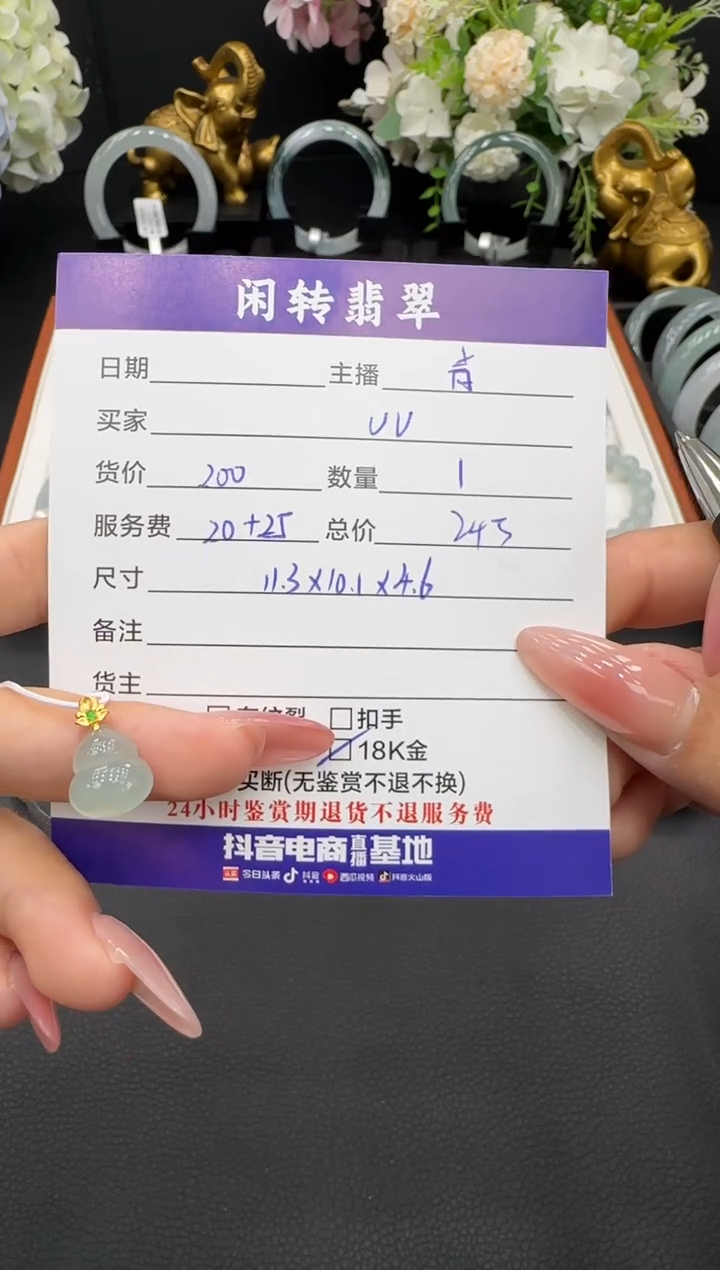 闲转翡翠
日期 主播 青
买家 UU
货价 200 数量 1
服务费 20+25 总价 245
尺寸 11.3×10.1×4.6
备注
货主
扣手
18K金
买断(无鉴赏不退不换)
24小时鉴赏期退货不退服务费
抖音电商直播基地
头条 今日头条 抖音 西瓜视频 抖音火山版